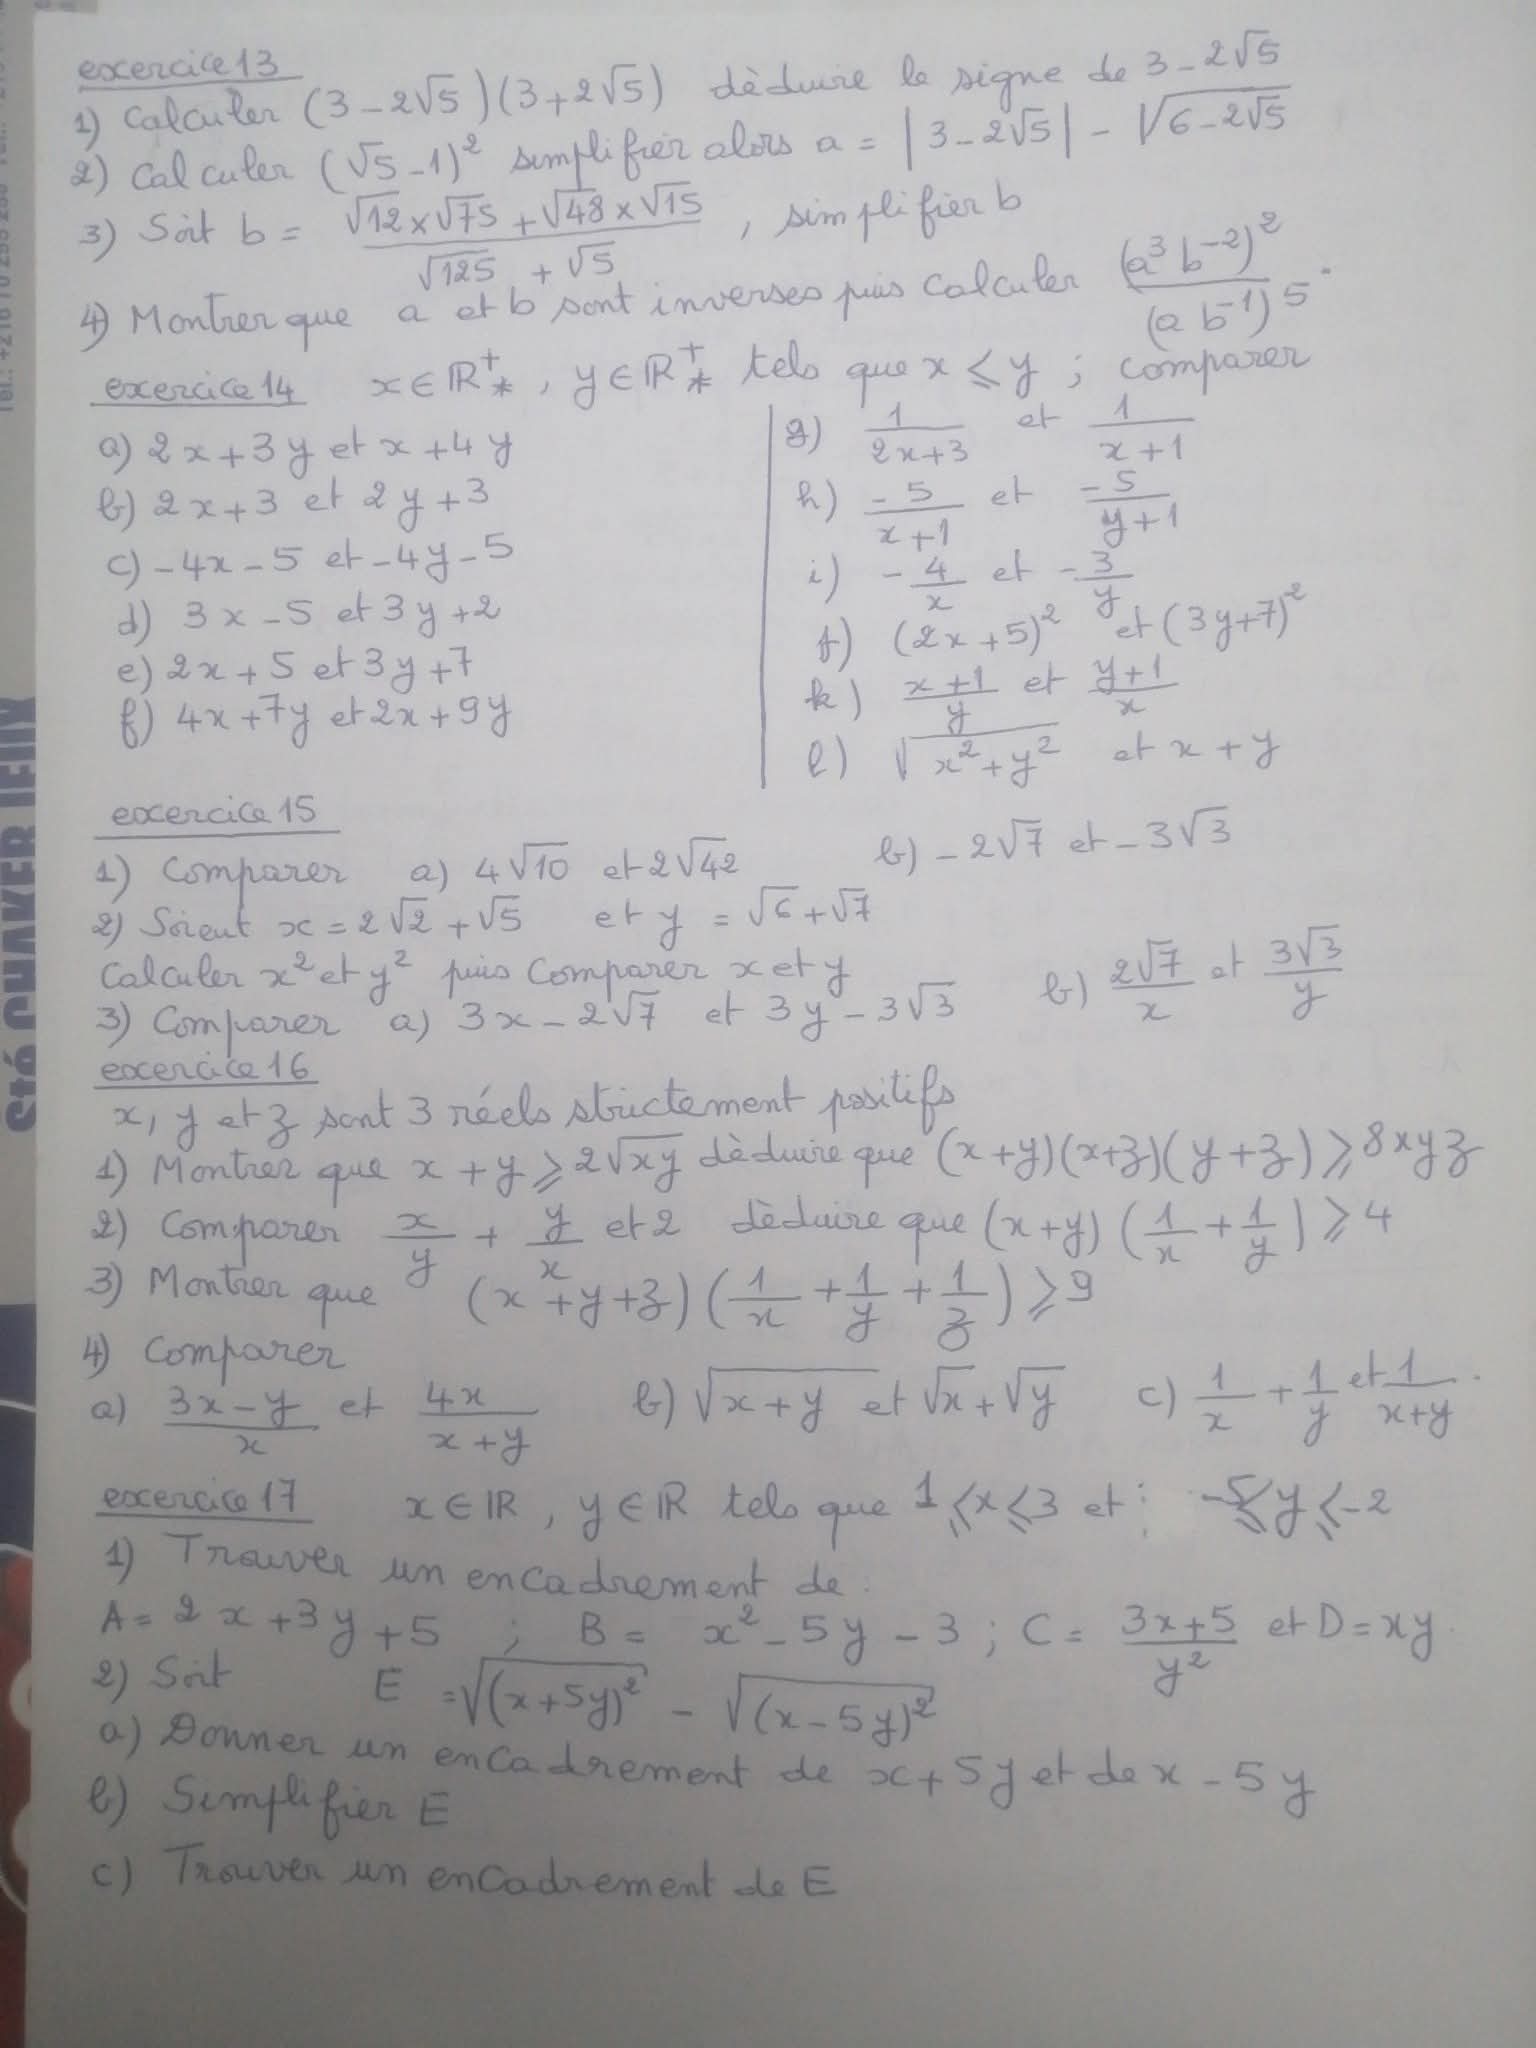 exercice 13
1) Calculer (3-2√5)(3+2√5) dèduire le signe de 3-2√5
2) Calculer (√5-1)² simplifier alors a = |3-2√5| - √(6-2√5)
3) Soit b = (√12×√75+√48×√15)/(√125+√5), simplifier b
4) Montrer que a et b sont inverses puis calculer (a³b⁻²)²/(ab⁻¹)⁵.
exercice 14 x∈ℝ₊*, y∈ℝ₊* tels que x⩽y ; comparer
a) 2x+3y et x+4y
b) 2x+3 et 2y+3
c) -4x-5 et -4y-5
d) 3x-5 et 3y+2
e) 2x+5 et 3y+7
f) 4x+7y et 2x+9y
g) 1/(2x+3) et 1/(x+1)
h) -5/(x+1) et -5/(y+1)
i) -4/x et -3/y
f) (2x+5)² et (3y+7)²
k) (x+1)/y et (y+1)/x
l) √(x²+y²) et x+y
exercice 15
1) Comparer a) 4√10 et 2√42 b) -2√7 et -3√3
2) Soient x = 2√2+√5 et y = √6+√7
Calculer x² et y² puis Comparer x et y
3) Comparer a) 3x-2√7 et 3y-3√3 b) 2√7/x et 3√3/y
exercice 16
x, y et z sont 3 réels strictement positifs
1) Montrer que x+y⩾2√(xy) dèduire que (x+y)(x+z)(y+z)⩾8xyz
2) Comparer x/y + y/x et 2 dèduire que (x+y)(1/x+1/y)⩾4
3) Montrer que (x+y+z)(1/x+1/y+1/z)⩾9
4) Comparer
a) (3x-y)/x et 4x/(x+y) b) √(x+y) et √x+√y c) 1/x+1/y et 1/(x+y).
exercice 17 x∈ℝ, y∈ℝ tels que 1⩽x⩽3 et -5⩽y⩽-2
1) Trouver un encadrement de :
A = 2x+3y+5 ; B = x²-5y-3 ; C = (3x+5)/y² et D = xy.
2) Soit E = √((x+5y)²) - √((x-5y)²)
a) Donner un encadrement de x+5y et de x-5y
b) Simplifier E
c) Trouver un encadrement de E
Sté CHAKER JEUX